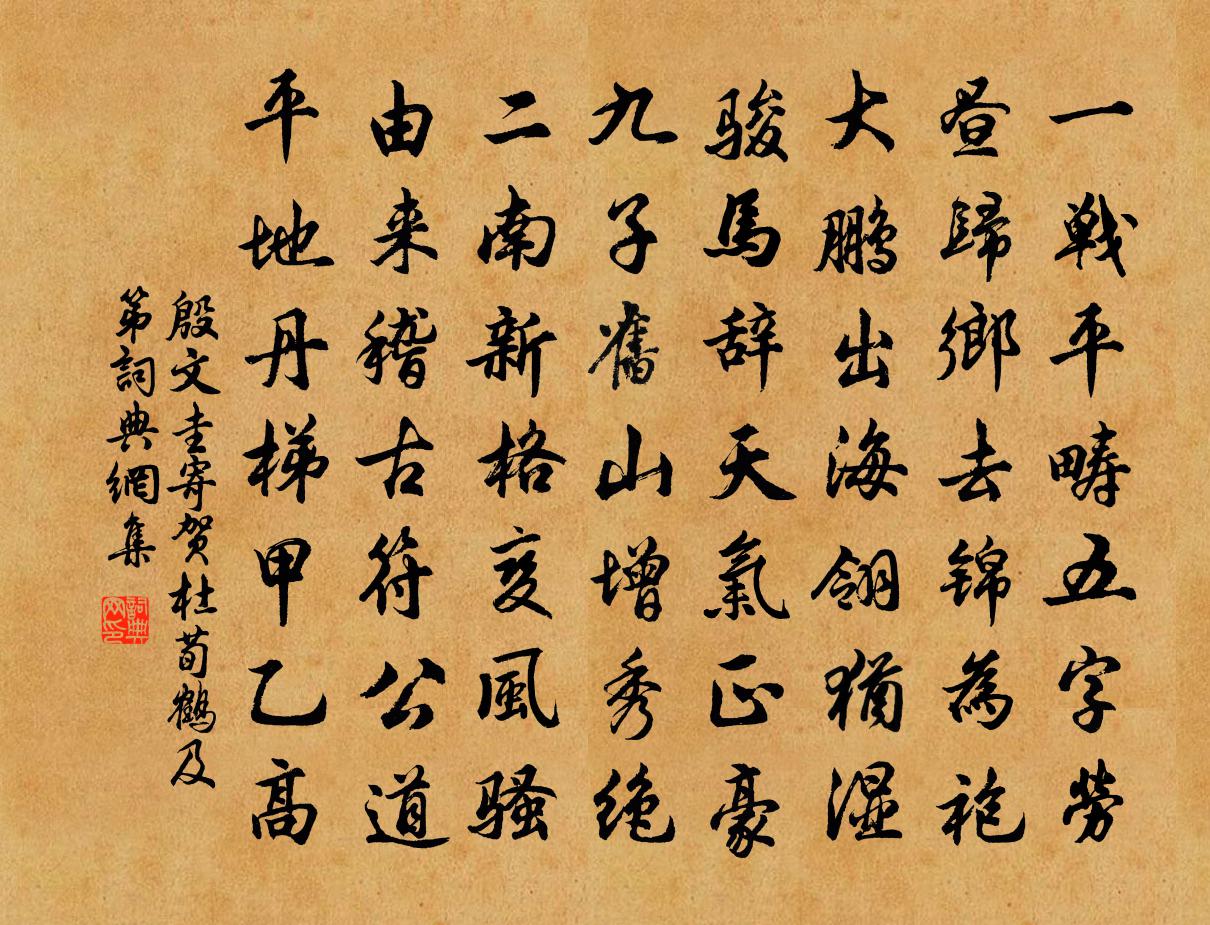 一戰平疇五字勞
晝歸鄉去錦為袍
大鵬出海翎猶濕
駿馬辞天氣正豪
九子舊山增秀絶
二南新格變風騷
由来稽古符公道
平地丹梯甲乙高
殷文圭寄贺杜荀鶴及
第詞典網集
詞典網印